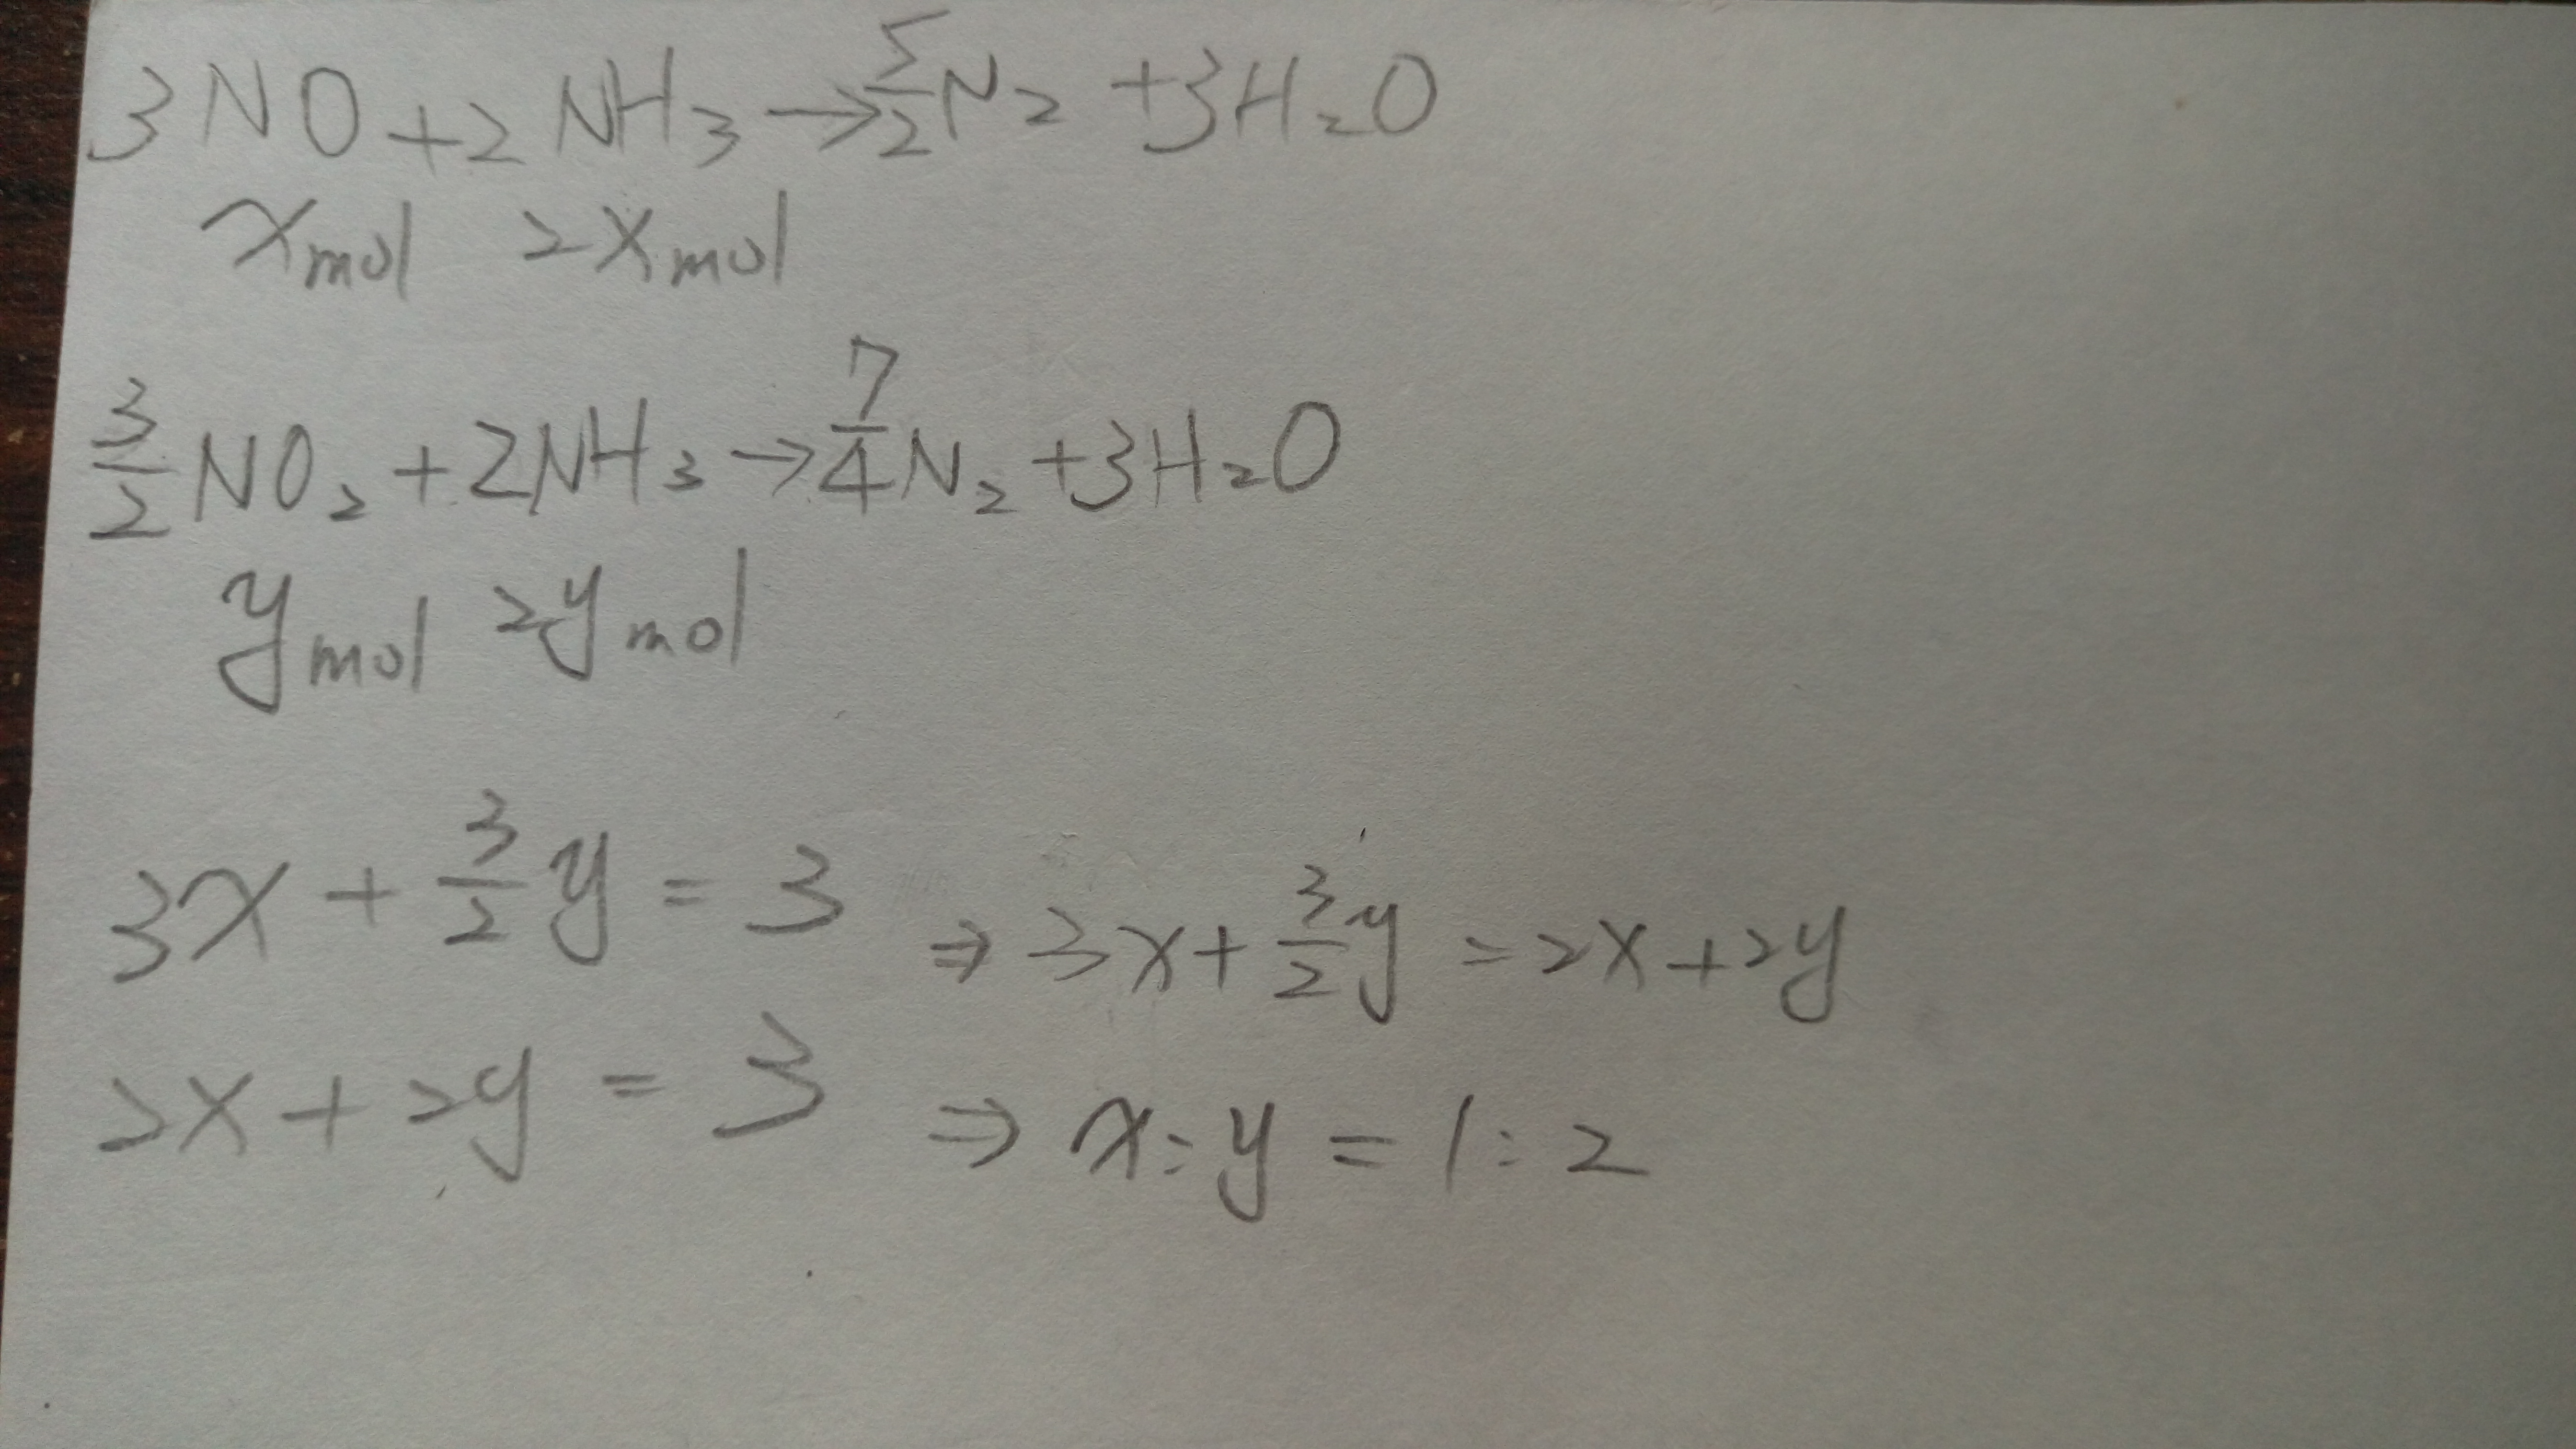 3NO + 2NH₃ → 5/2 N₂ + 3H₂O
xmol 2xmol
3/2 NO₂ + 2NH₃ → 7/4 N₂ + 3H₂O
ymol 2ymol
3x + 3/2 y = 3 ⇒ 3x + 3/2 y = 2x + 2y
2x + 2y = 3 ⇒ x : y = 1 : 2